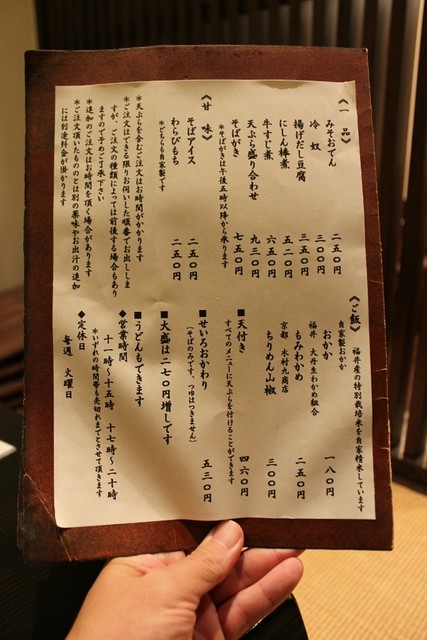 《一品》
みそおでん 二五〇円
冷奴 三〇〇円
揚げだし豆腐 三五〇円
にしん棒煮 五二〇円
牛すじ煮 六五〇円
天ぷら盛り合わせ 九三〇円
そばがき 七五〇円
＊そばがきは午後五時以降から承ります
《甘味》
そばアイス 二五〇円
わらびもち 二五〇円
＊どちらも自家製です
＊天ぷらを含むご注文はお時間がかかります
＊ご注文はできる限りお伺いした順番でお出ししま
すが、ご注文の種類によっては前後する場合もあり
ますので予めご了承下さい
＊追加のご注文はお時間を頂く場合があります
＊ご注文頂いたもののとは別の薬味やお出汁の追加
には別途料金が掛かります
《ご飯》
福井産の特別栽培米を自家精米しています
自家製おかか
おかか 一八〇円
福井 大丹生わかめ組合
もみわかめ 二五〇円
京都 木村九商店
ちりめん山椒 三〇〇円
■天付き 四六〇円
すべてのメニューに天ぷらを付けることができます
■せいろおかわり 五三〇円
(そばのみです。つゆはつきません)
■大盛は二七〇円増しです
■うどんもできます
◆営業時間
十一時〜十五時 十七時〜二十時
＊いずれの時間帯も売切れまでとさせて頂きます
◆定休日
毎週 火曜日